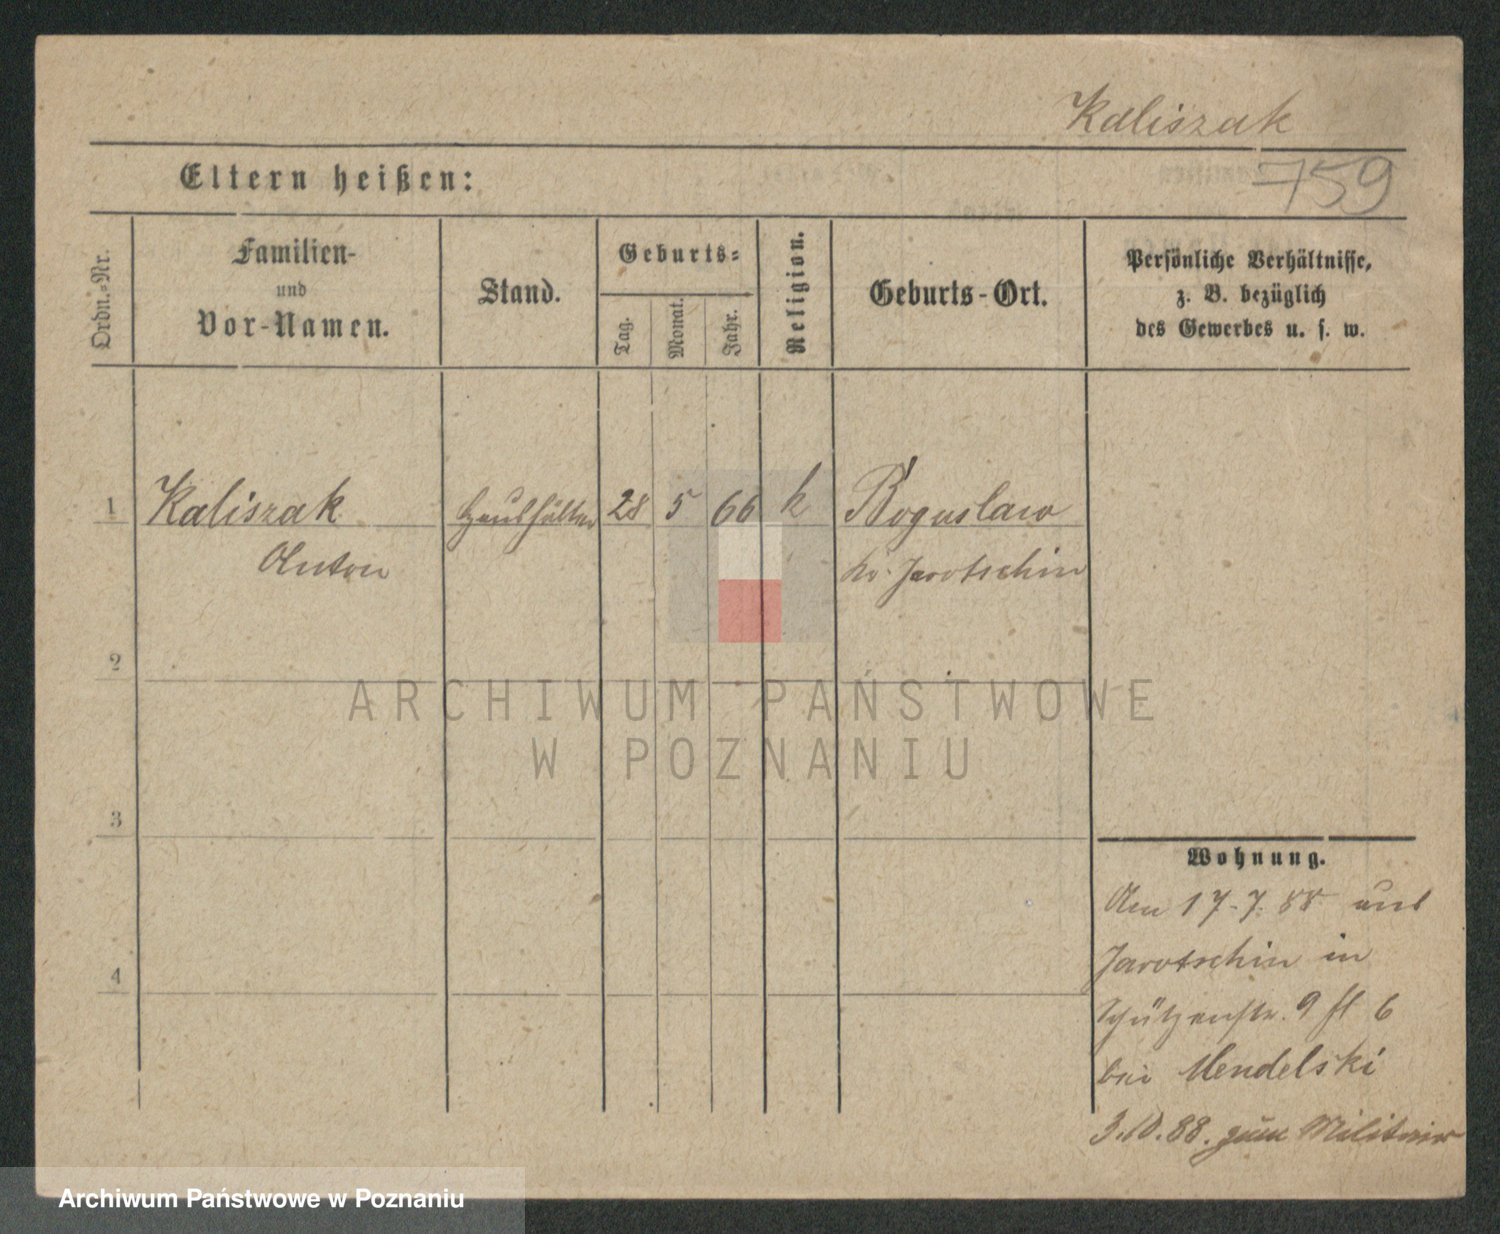 Kaliszak
759
Eltern heißen:
Ordn.-Nr.
Familien-
und
Vor-Namen.
Stand.
Geburts-
Tag.
Monat.
Jahr.
Religion.
Geburts-Ort.
Persönliche Verhältnisse,
z. B. bezüglich
des Gewerbes u. s. w.
1 Kaliszak Haushälter 28 5 66 k Boguslaw
Anton Kr. Jarotschin
2
3
4
Wohnung.
Am 17.7.88 aus
Jarotschin in
Schützenstr. 9 6
bei Mendelski
3.10.88. zum Militair
ARCHIWUM PAŃSTWOWE
W POZNANIU
Archiwum Państwowe w Poznaniu